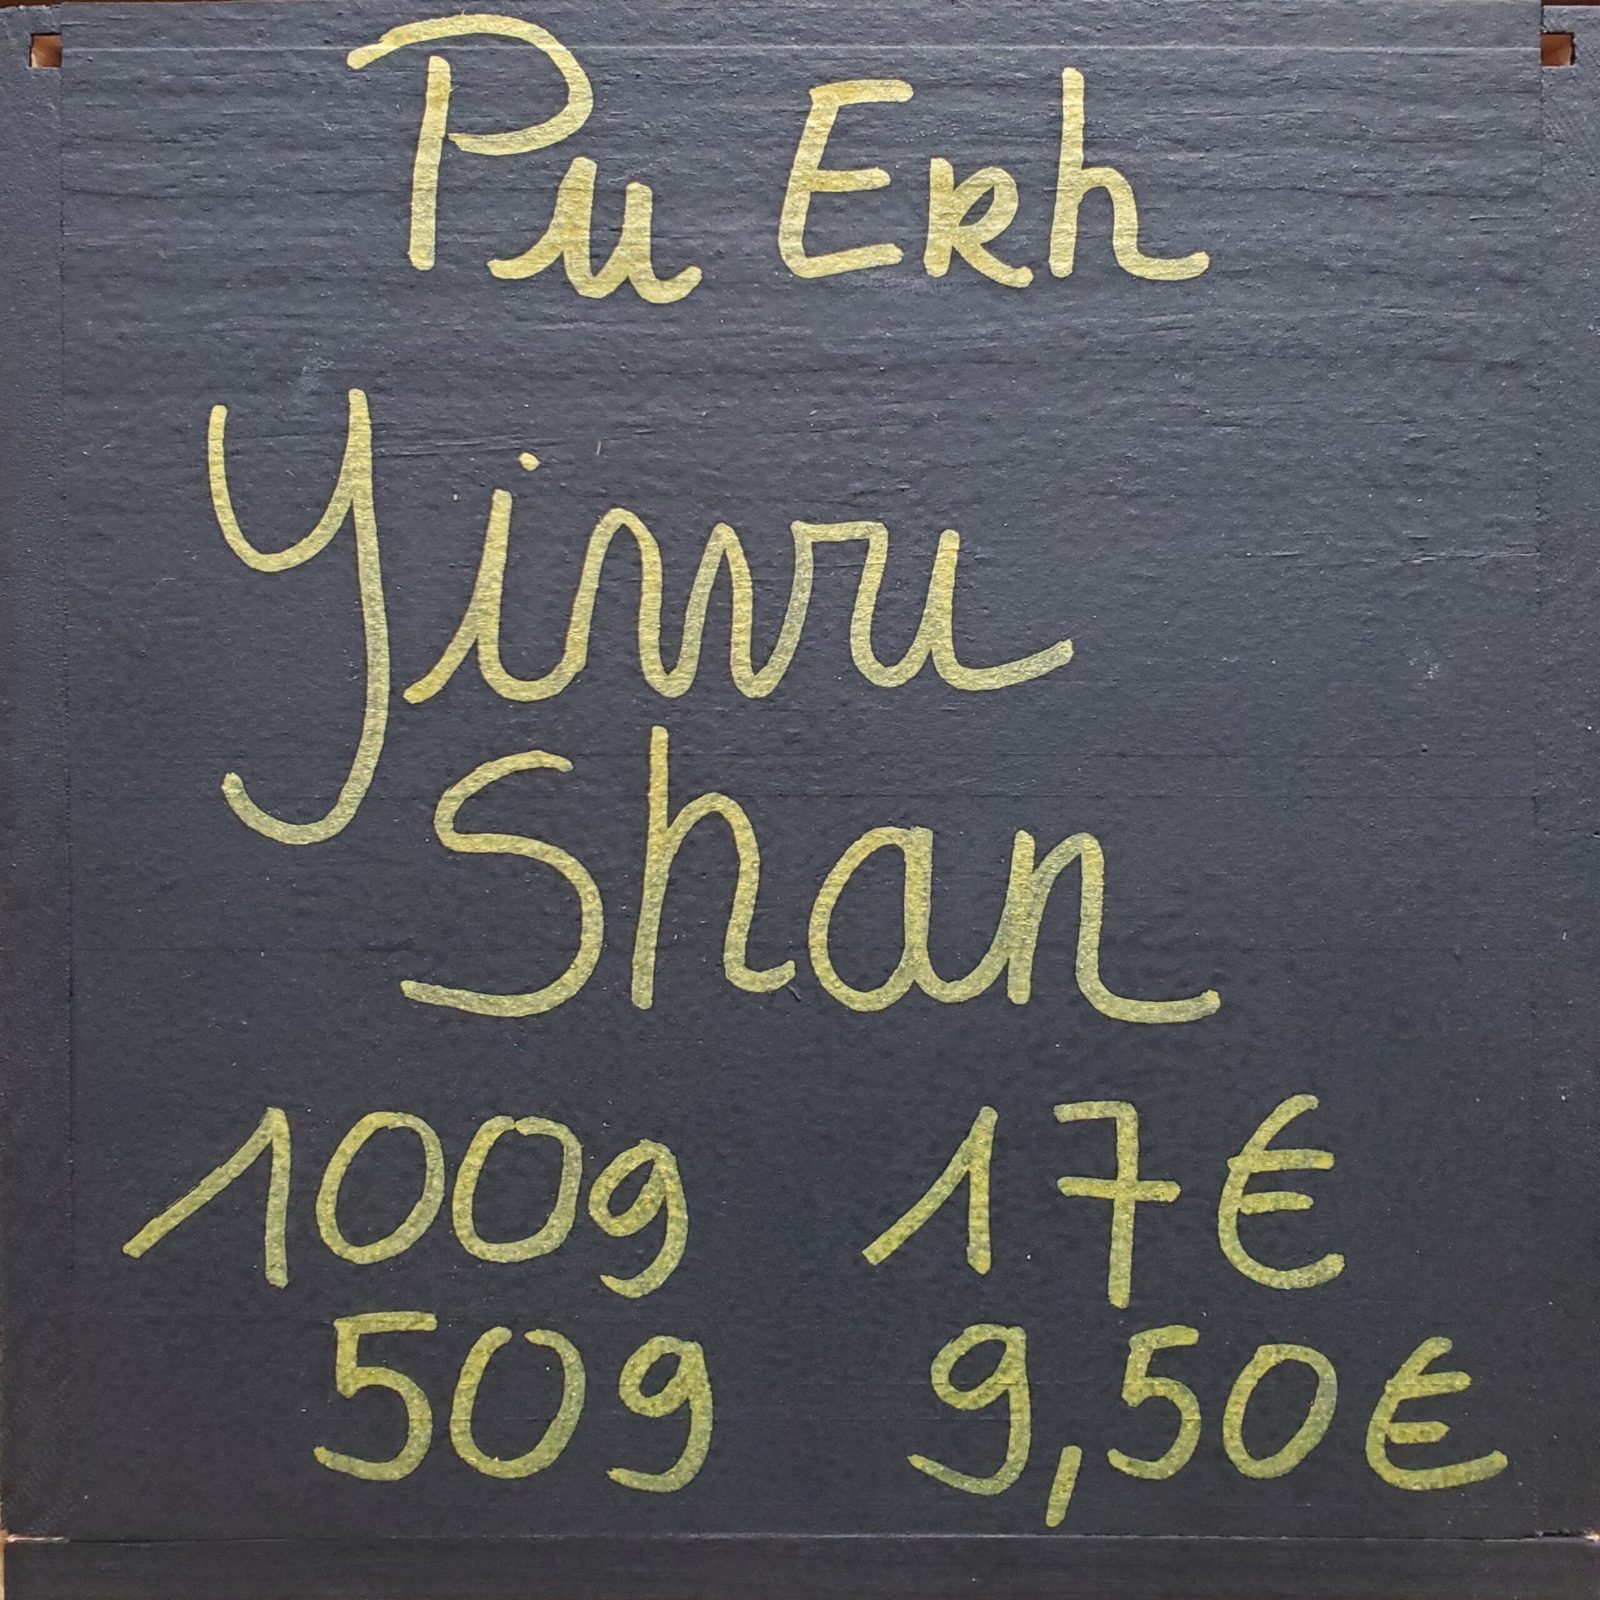 Pu Erh
Yiwu
Shan
100g 17€
50g 9,50€